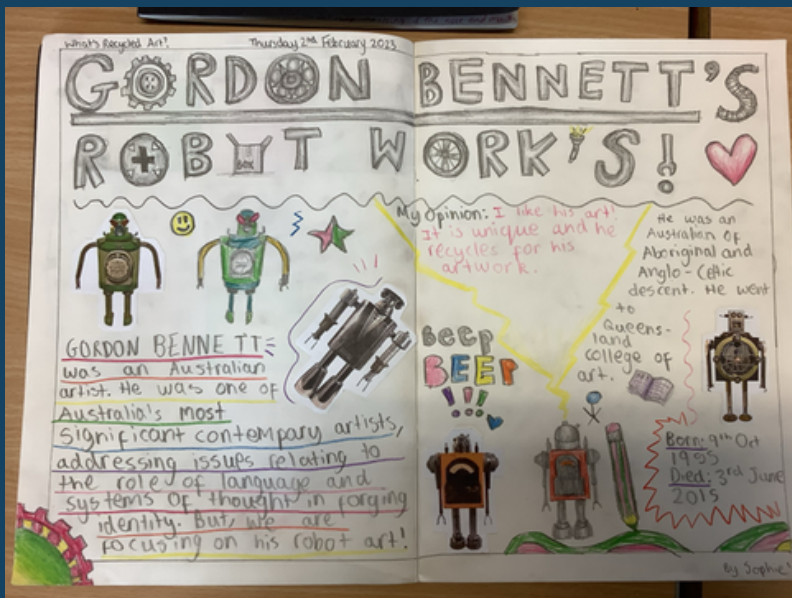 What's Recycled Art?
Thursday 2nd February 2023
GORDON BENNETT'S
ROBOT WORK'S!
BOX
GORDON BENNETT
was an Australian
artist. He was one of
Australia's most
significant contempary artists,
addressing issues relating to
the role of language and
systems of thought in forging
identity. But, we are
focusing on his robot art!
My Opinion: I like his art!
It is unique and he
recycles for his
artwork.
He was an
Australian of
Aboriginal and
Anglo-Celtic
descent. He went
to
Queens-
land
college of
art.
beep
BEEP
!!!
Born: 9th Oct
1955
Died: 3rd June
2015
By Sophie!